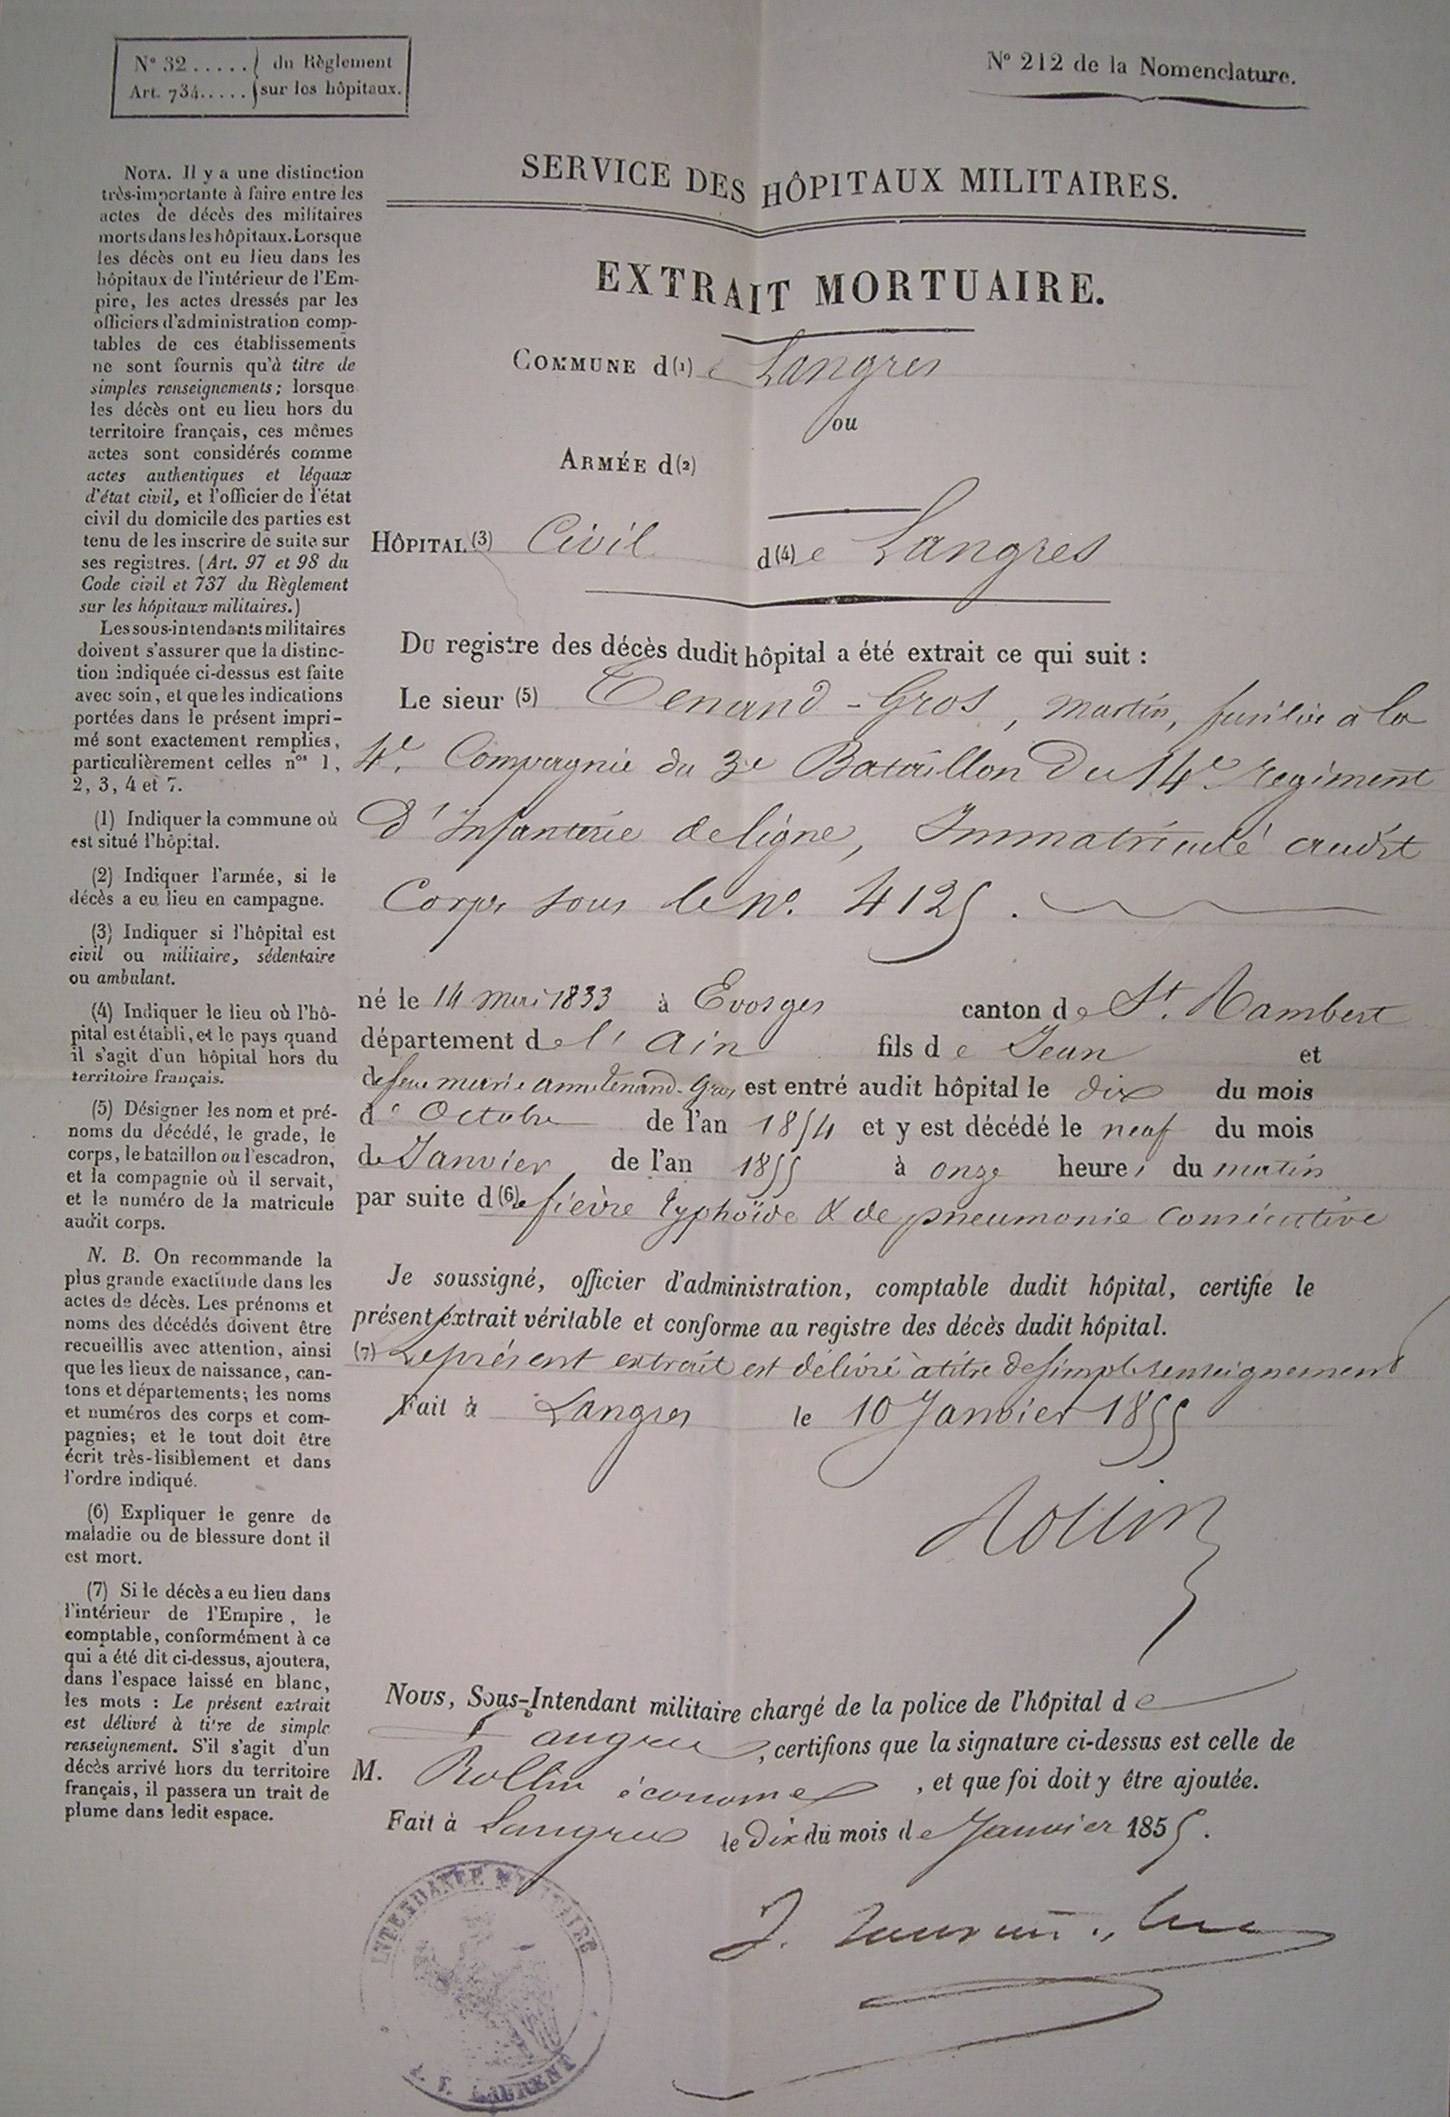 N° 32 ..... du Règlement
Art. 734 ..... sur les hôpitaux.
N° 212 de la Nomenclature.
SERVICE DES HÔPITAUX MILITAIRES.
EXTRAIT MORTUAIRE.
COMMUNE d(1) e Langres
ou
ARMÉE d(2)
HÔPITAL (3) Civil d(4) e Langres
Du registre des décès dudit hôpital a été extrait ce qui suit :
Le sieur (5) Tenand-Gros, Martin, fusilier à la
4e Compagnie du 3e Bataillon du 14e régiment
d'Infanterie de ligne, Immatriculé audit
Corps sous le No. 4125.
né le 14 mai 1833 à Evosges canton de St. Rambert
département de l'Ain fils de Jean et
de feue marie anne Tenand-Gros est entré audit hôpital le dix du mois
d'Octobre de l'an 1854 et y est décédé le neuf du mois
de Janvier de l'an 1855 à onze heures du matin
par suite d(6) e fièvre typhoïde & de pneumonie consécutive
Je soussigné, officier d'administration, comptable dudit hôpital, certifie le
présent extrait véritable et conforme au registre des décès dudit hôpital.
(7) Le présent extrait est délivré à titre de simple renseignement
Fait à Langres le 10 Janvier 1855
Rollin
Nous, Sous-Intendant militaire chargé de la police de l'hôpital de
Langres, certifions que la signature ci-dessus est celle de
M. Rollin économe, et que foi doit y être ajoutée.
Fait à Langres le dix du mois de Janvier 1855.
INTENDANCE MILITAIRE
LAURENT
NOTA. Il y a une distinction
très-importante à faire entre les
actes de décès des militaires
morts dans les hôpitaux. Lorsque
les décès ont eu lieu dans les
hôpitaux de l'intérieur de l'Em-
pire, les actes dressés par les
officiers d'administration comp-
tables de ces établissements
ne sont fournis qu'à titre de
simples renseignements; lorsque
les décès ont eu lieu hors du
territoire français, ces mêmes
actes sont considérés comme
actes authentiques et légaux
d'état civil, et l'officier de l'état
civil du domicile des parties est
tenu de les inscrire de suite sur
ses registres. (Art. 97 et 98 du
Code civil et 737 du Règlement
sur les hôpitaux militaires.)
Les sous-intendants militaires
doivent s'assurer que la distinc-
tion indiquée ci-dessus est faite
avec soin, et que les indications
portées dans le présent impri-
mé sont exactement remplies,
particulièrement celles nos 1,
2, 3, 4 et 7.
(1) Indiquer la commune où
est situé l'hôpital.
(2) Indiquer l'armée, si le
décès a eu lieu en campagne.
(3) Indiquer si l'hôpital est
civil ou militaire, sédentaire
ou ambulant.
(4) Indiquer le lieu où l'hô-
pital est établi, et le pays quand
il s'agit d'un hôpital hors du
territoire français.
(5) Désigner les nom et pré-
noms du décédé, le grade, le
corps, le bataillon ou l'escadron,
et la compagnie où il servait,
et le numéro de la matricule
audit corps.
N. B. On recommande la
plus grande exactitude dans les
actes de décès. Les prénoms et
noms des décédés doivent être
recueillis avec attention, ainsi
que les lieux de naissance, can-
tons et départements; les noms
et numéros des corps et com-
pagnies; et le tout doit être
écrit très-lisiblement et dans
l'ordre indiqué.
(6) Expliquer le genre de
maladie ou de blessure dont il
est mort.
(7) Si le décès a eu lieu dans
l'intérieur de l'Empire, le
comptable, conformément à ce
qui a été dit ci-dessus, ajoutera,
dans l'espace laissé en blanc,
les mots : Le présent extrait
est délivré à titre de simple
renseignement. S'il s'agit d'un
décès arrivé hors du territoire
français, il passera un trait de
plume dans ledit espace.